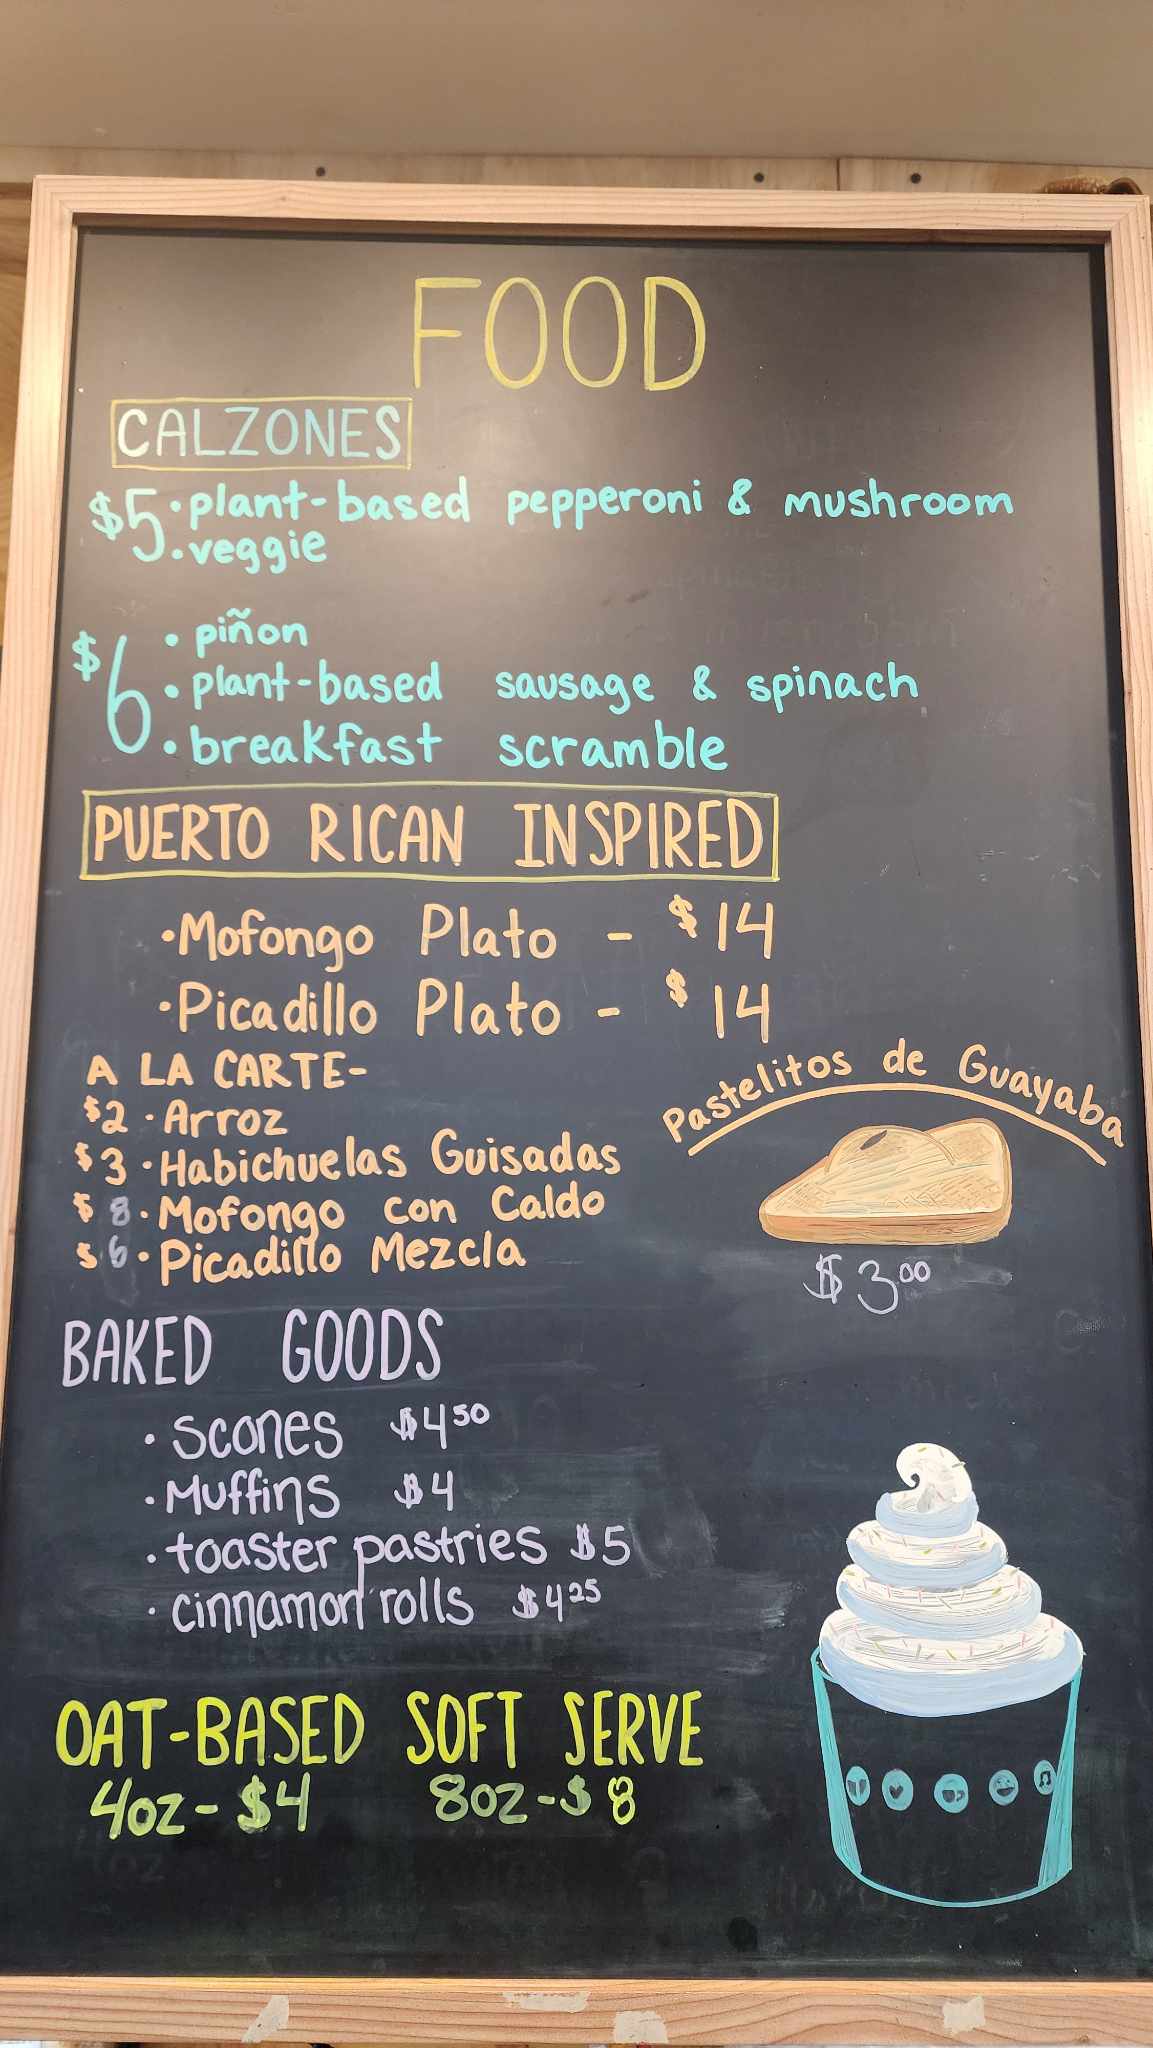 FOOD
CALZONES
$5 · plant-based pepperoni & mushroom
· veggie
· piñon
$6 · plant-based sausage & spinach
· breakfast scramble
PUERTO RICAN INSPIRED
· Mofongo Plato - $14
· Picadillo Plato - $14
A LA CARTE-
$2 · Arroz
$3 · Habichuelas Guisadas
$8 · Mofongo con Caldo
$6 · Picadillo Mezcla
Pastelitos de Guayaba
$3.00
BAKED GOODS
· Scones $4 50
· Muffins $4
· toaster pastries $5
· cinnamon rolls $4 25
OAT-BASED SOFT SERVE
4oz - $4 8oz - $8